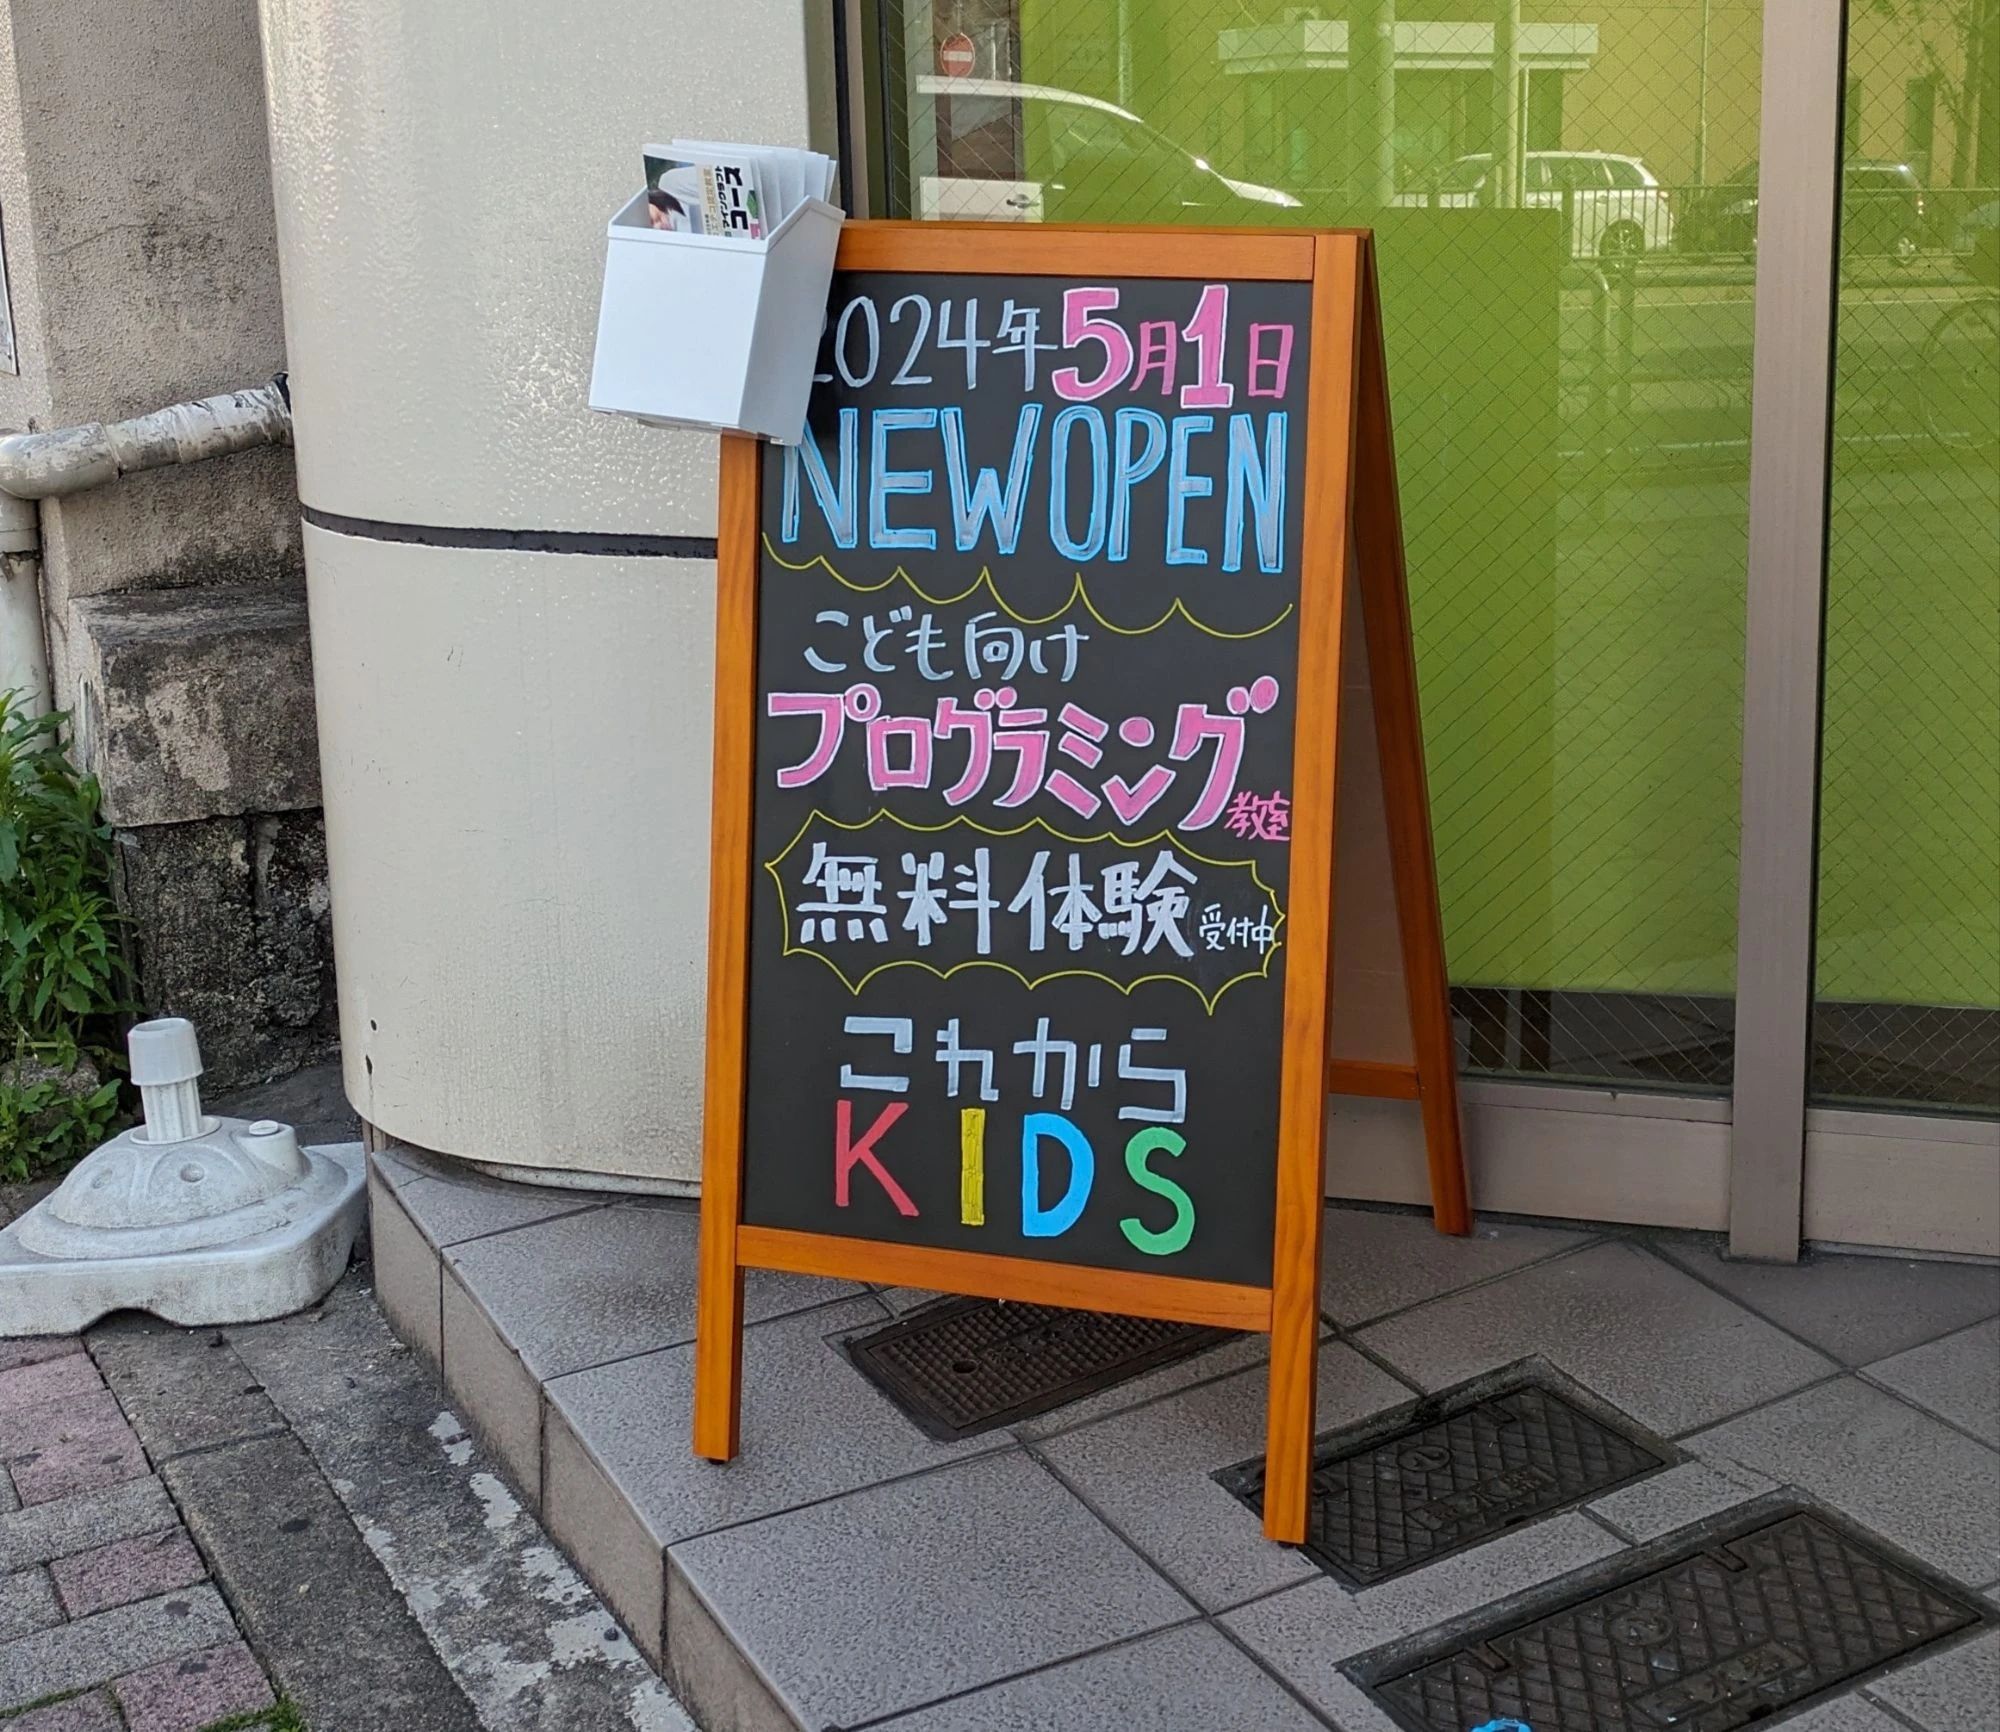 2024年5月1日
NEW OPEN
こども向け
プログラミング教室
無料体験 受付中
これから
KIDS